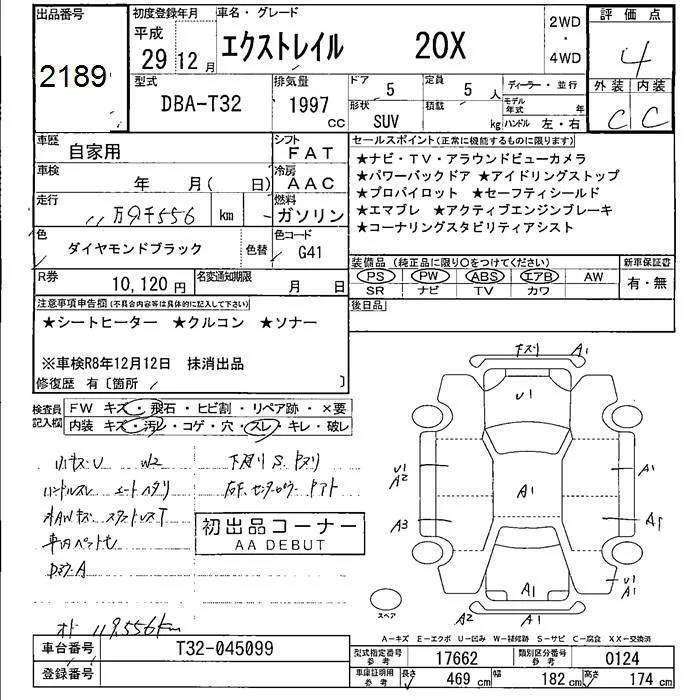 出品番号
2189
初度登録年月
平成
29 12月
車名・グレード
エクストレイル 20X
2WD
・
4WD
評価点
4
外装 内装
C C
型式
DBA-T32
排気量
1997
CC
ドア
5
定員
5 人
ディーラー・並行
形状
SUV
積載
kg
モデル年式
年
ハンドル 左・右
車歴
自家用
シフト
FAT
車検
年 月( 日)
冷房
AAC
走行
11万9千556 km
燃料
ガソリン
色
ダイヤモンドブラック
色替
色コード
G41
R券
10,120 円
名変通知期限
月 日
セールスポイント(正常に機能するものに限ります)
★ナビ・TV・アラウンドビューカメラ
★パワーバックドア ★アイドリングストップ
★プロパイロット ★セーフティシールド
★エマブレ ★アクティブエンジンブレーキ
★コーナリングスタビリティアシスト
装備品(純正品に限り○をつけてください)
PS PW ABS エアB AW
SR ナビ TV カワ
新車保証書
有・無
後日品
注意事項申告欄(不具合内容等は具体的に記入して下さい)
★シートヒーター ★クルコン ★ソナー
※車検R8年12月12日 抹消出品
修復歴 有〔箇所 〕
検査員
記入欄
FW キズ・飛石・ヒビ割・リペア跡・×要
内装 キズ・汚レ・コゲ・穴・スレ・キレ・破レ
小キズ・U W2
ハンドルスレ シートヘタリ
下廻り S、ケズリ
初出品コーナー
AA DEBUT
119,556km
下ズリ A1
U1
U1
A2
A1
A1
A3
A1
U1
A1
A1
A2
A1
スペア
A―キズ E―エクボ U―凹み W―補修跡 S―サビ C―腐食 XX―交換済
車台番号
T32-045099
登録番号
型式指定番号
参考
17662
類別区分番号
参考
0124
車庫証明用
参考
長さ
469 cm
幅
182 cm
高さ
174 cm